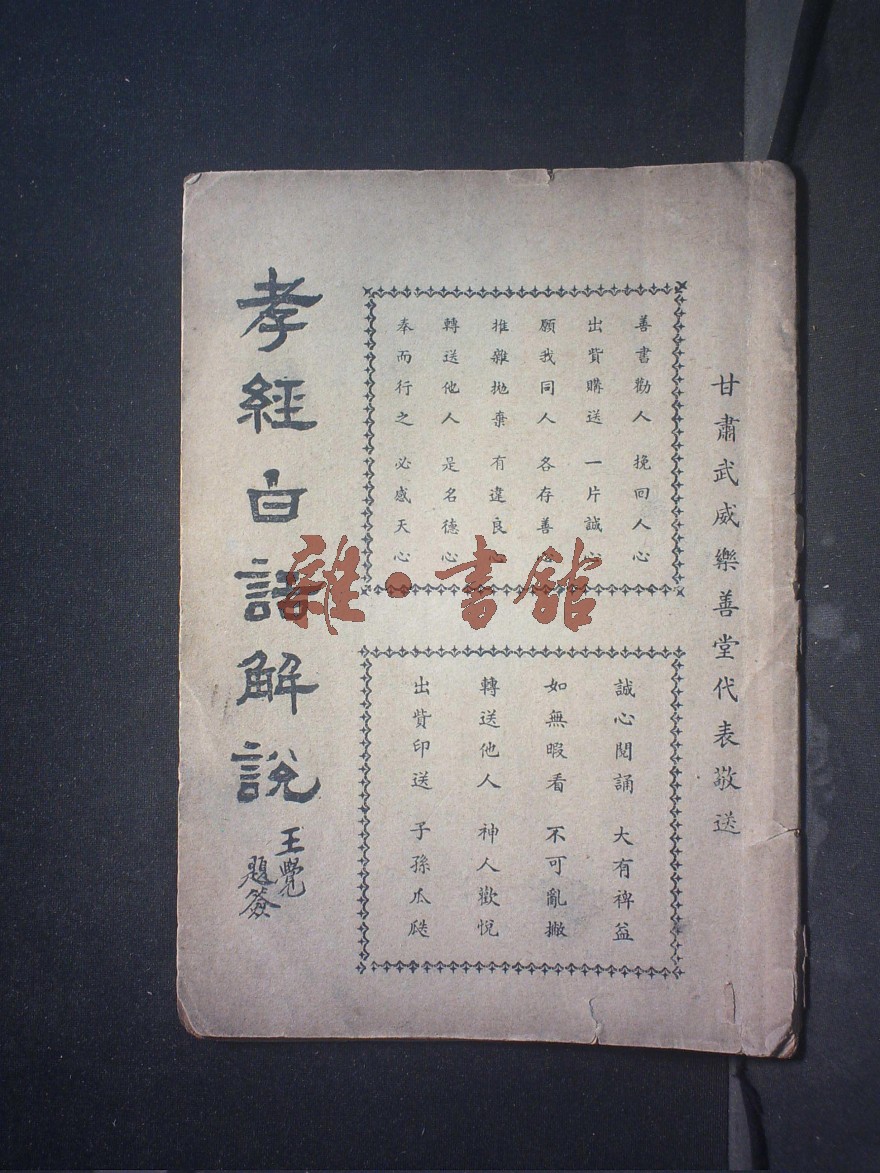 甘肅武威樂善堂代表敬送
善書勸人 挽回人心
出貲購送 一片誠心
願我同人 各存善心
推雜拋棄 有違良心
轉送他人 是名德心
奉而行之 必感天心
誠心閱誦 大有裨益
如無暇看 不可亂撇
轉送他人 神人歡悅
出貲印送 子孫瓜瓞
孝經白話解說
王覺
題簽
雜·書館